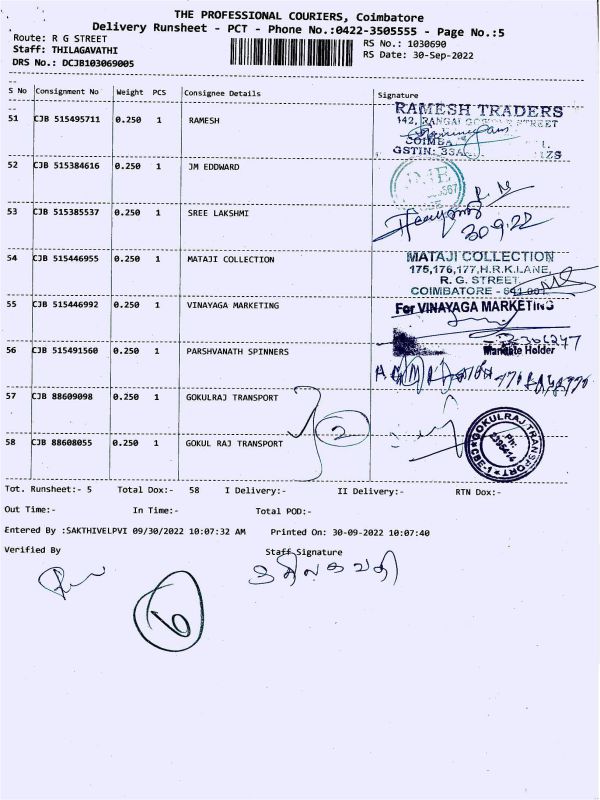 THE PROFESSIONAL COURIERS, Coimbatore
Delivery Runsheet - PCT - Phone No.:0422-3505555 - Page No.:5
Route: R G STREET
RS No.: 1030690
Staff: THILAGAVATHI
RS Date: 30-Sep-2022
DRS No.: DCJB103069005
S No Consignment No Weight PCS Consignee Details Signature
51 CJB 515495711 0.250 1 RAMESH
RAMESH TRADERS
142, RANGAI STREET
GSTIN: 33A
52 CJB 515384616 0.250 1 JM EDDWARD
JME
53 CJB 515385537 0.250 1 SREE LAKSHMI
30.9.22
54 CJB 515446955 0.250 1 MATAJI COLLECTION
MATAJI COLLECTION
175,176,177,H.R.K.LANE,
R. G. STREET
COIMBATORE - 641 001.
55 CJB 515446992 0.250 1 VINAYAGA MARKETING
For VINAYAGA MARKETING
56 CJB 515491560 0.250 1 PARSHVANATH SPINNERS
Mandate Holder
57 CJB 88609098 0.250 1 GOKULRAJ TRANSPORT
2
58 CJB 88608055 0.250 1 GOKUL RAJ TRANSPORT
GOKULRAJ TRANSPORT
Ph:
CBE-1
Tot. Runsheet:- 5 Total Dox:- 58 I Delivery:- II Delivery:- RTN Dox:-
Out Time:- In Time:- Total POD:-
Entered By :SAKTHIVELPVI 09/30/2022 10:07:32 AM Printed On: 30-09-2022 10:07:40
Verified By Staff Signature
திலகவதி
6